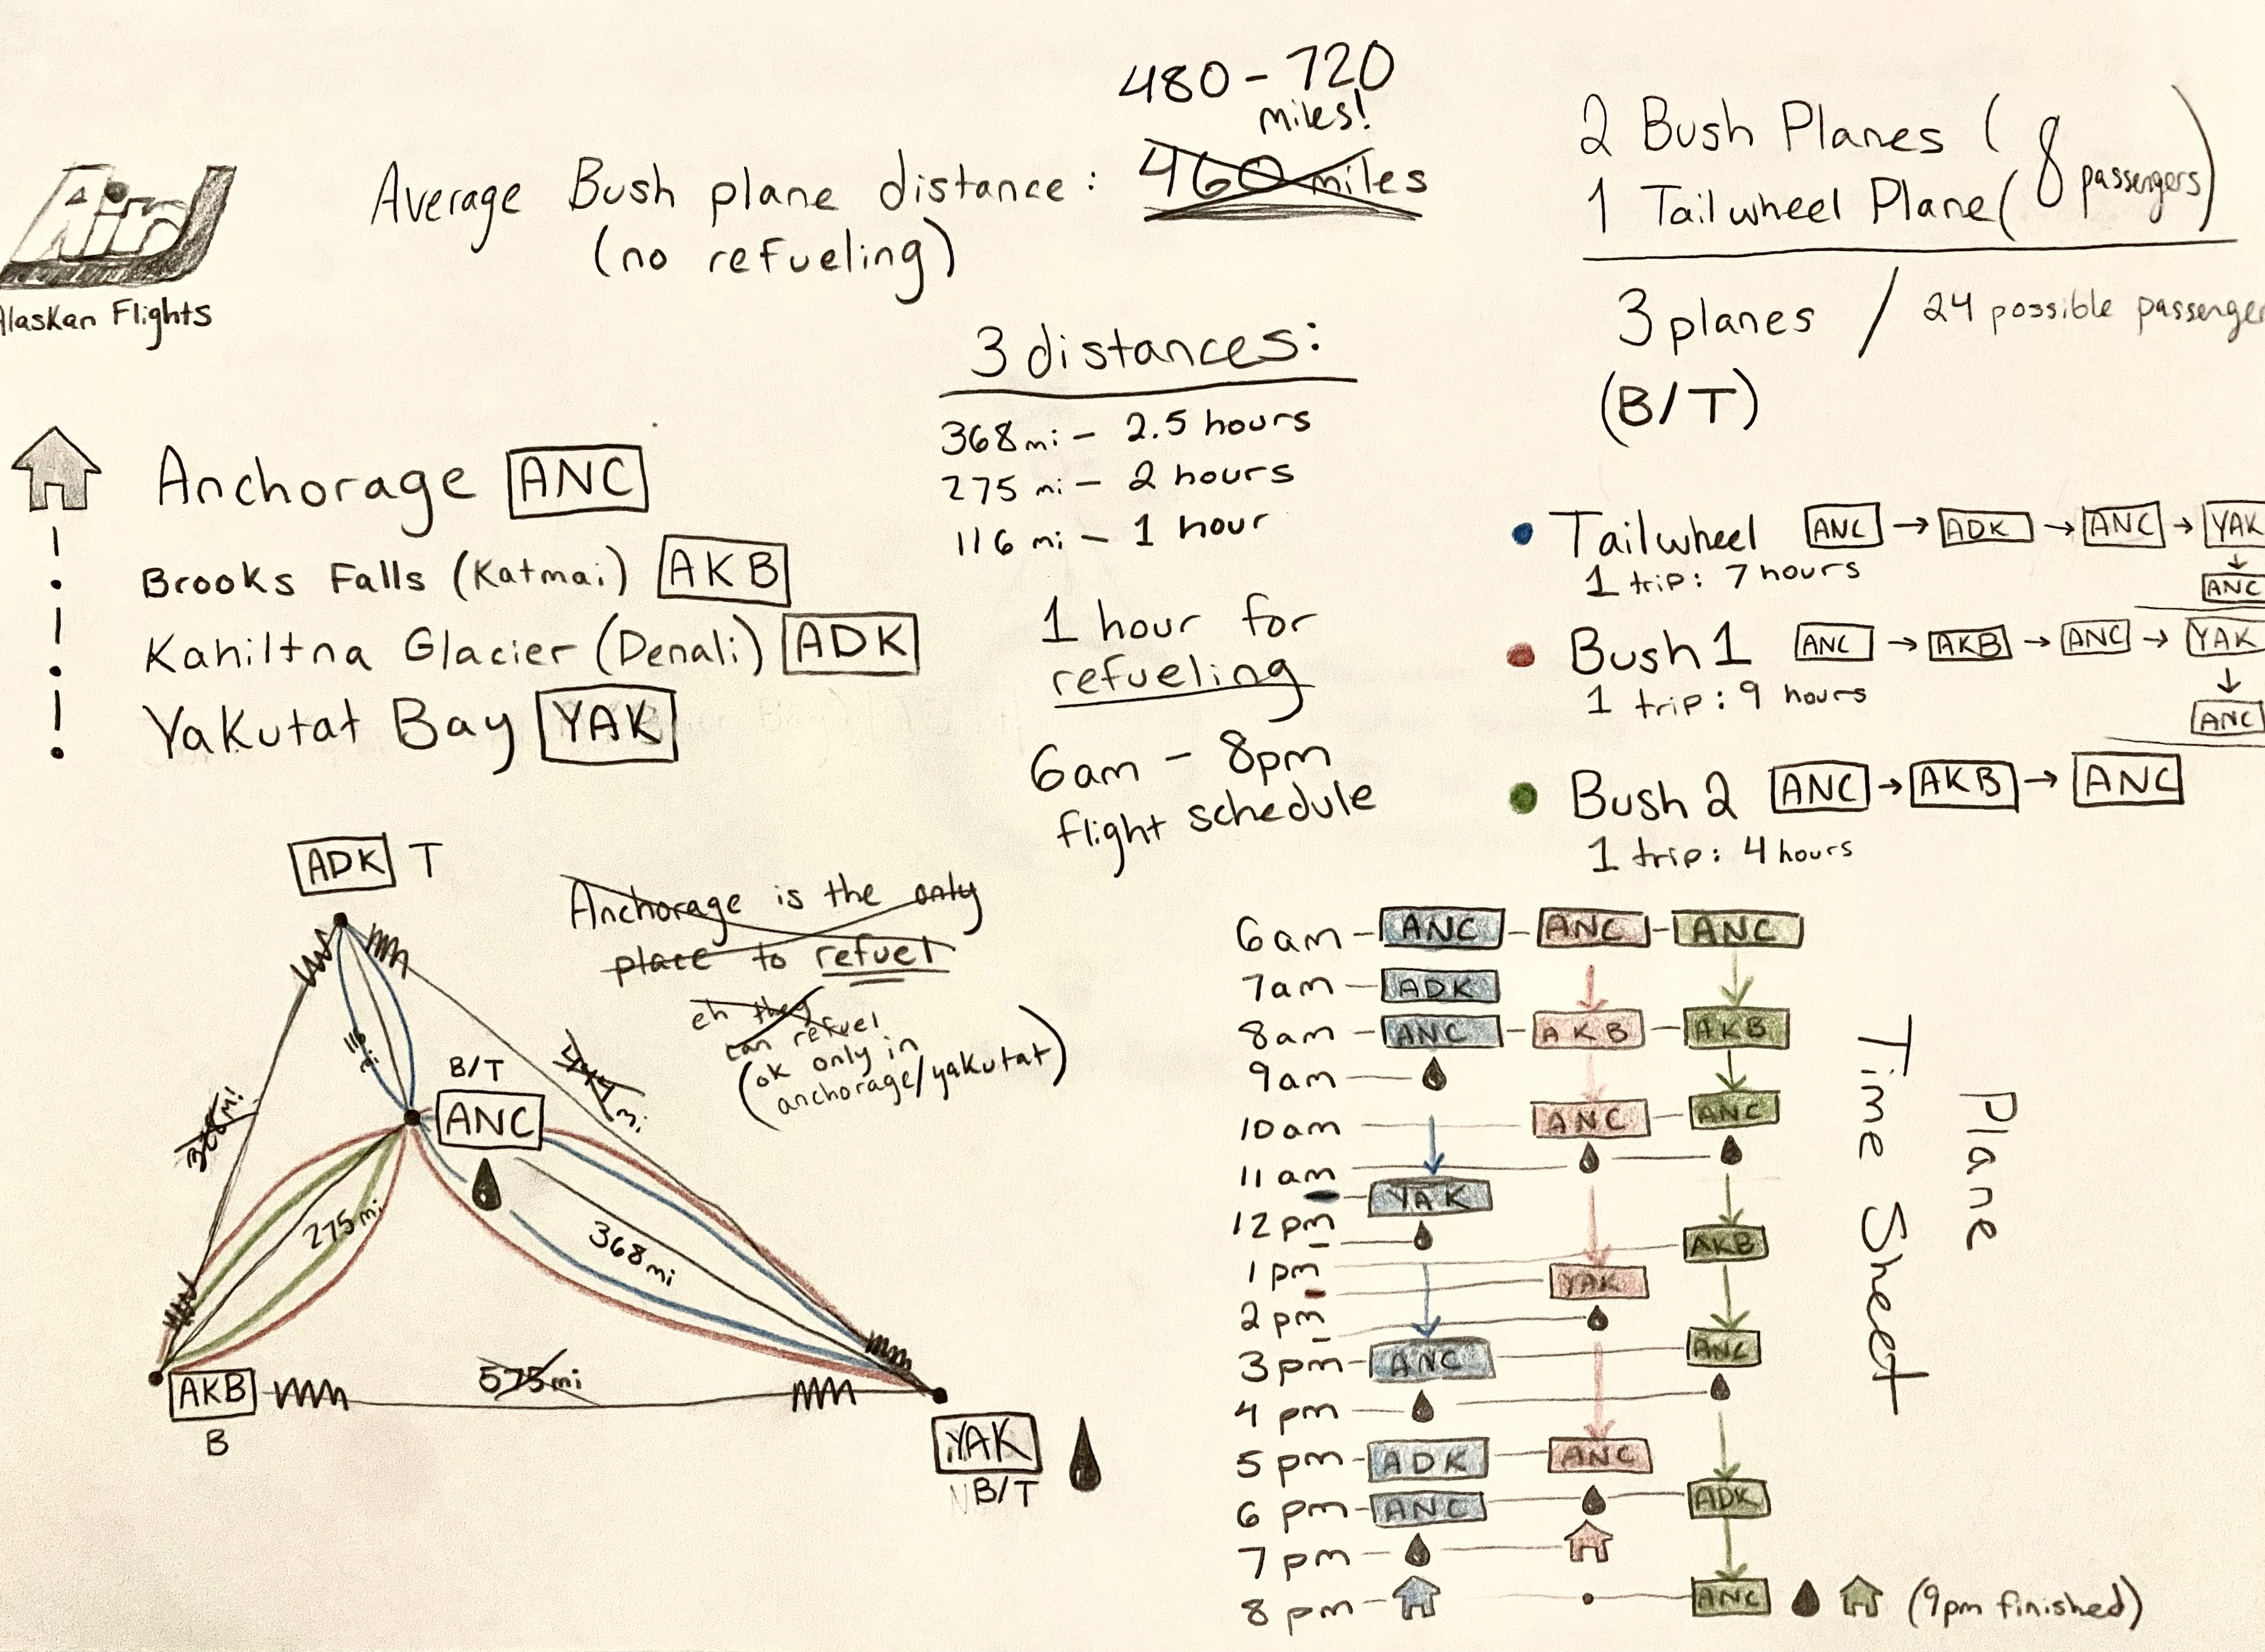 480 - 720
miles!
Average Bush plane distance: 460 miles
(no refueling)
Air
Alaskan Flights
2 Bush Planes (8 passengers)
1 Tailwheel Plane (
3 planes / 24 possible passenger
(B/T)
3 distances:
368mi - 2.5 hours
275 mi - 2 hours
116 mi - 1 hour
1 hour for
refueling
6am - 8pm
flight schedule
Anchorage ANC
Brooks Falls (Katmai) AKB
Kahiltna Glacier (Denali) ADK
Yakutat Bay YAK
Tailwheel ANC → ADK → ANC → YAK
↓
ANC
1 trip: 7 hours
Bush 1 ANC → AKB → ANC → YAK
↓
ANC
1 trip: 9 hours
Bush 2 ANC → AKB → ANC
1 trip: 4 hours
ADK T
Anchorage is the only
place to refuel
eh they
can refuel
(ok only in
anchorage/yakutat)
116
mi
B/T
ANC
368mi
275mi
368mi
575mi
AKB
B
YAK
B/T
6am - ANC - ANC - ANC
7am - ADK
8am - ANC - AKB - AKB
9am
10am ANC - ANC
11am
YAK
12pm
AKB
1pm
YAK
2pm
3pm - ANC ANC
4pm
5pm - ADK - ANC
6pm - ANC ADK
7pm
8pm ANC (9pm finished)
Plane
Time Sheet